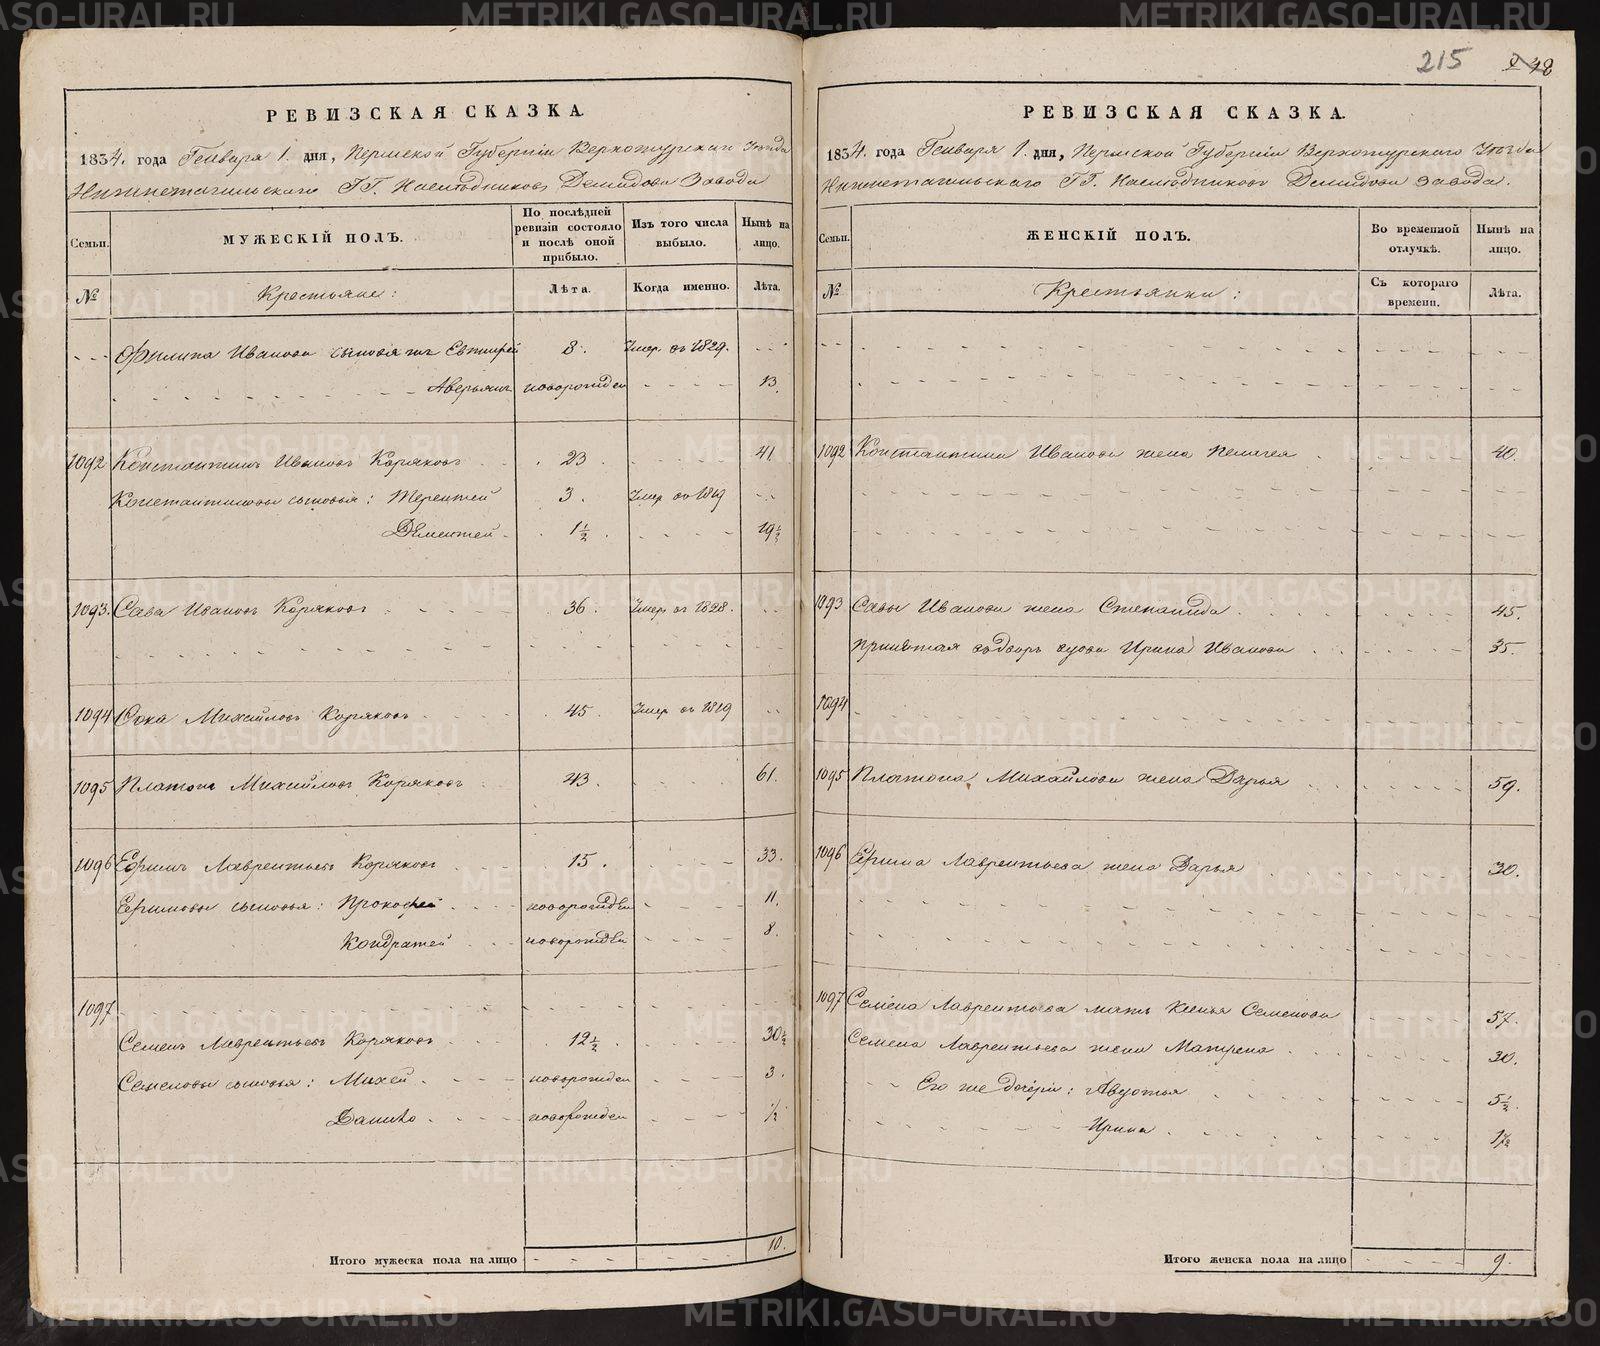 215
РЕВИЗСКАЯ СКАЗКА.
1834. года Генваря 1. дня, Пермской Губернiи Верхотурскаго Уезда
Нижнетагильскаго ГГ. Наследниковъ Демидова Завода
Семьи.
МУЖЕСКІЙ ПОЛЪ.
По послѣдней ревизіи состояло и послѣ оной прибыло.
Изъ того числа выбыло.
Нынѣ на лицо.
№
Крестьяне:
Лѣта.
Когда именно.
Лѣта.
Филипа Иванова сыновья Евтифей 8. Умер. въ 1829.
Аверьянъ новорожден 13.
1092 Константинъ Ивановъ Коряковъ 23 41
Константиновы сыновья: Терентей 3. Умер въ 1819
Дементей 1 1/2 19 1/2
1093. Сава Ивановъ Коряковъ 36. Умер въ 1828.
1094 Сока Михайловъ Коряковъ 45. Умер въ 1819
1095 Платонъ Михайловъ Коряковъ 43. 61.
1096 Ефимъ Лаврентьевъ Коряковъ 15. 33.
Ефимовы сыновья: Прокофей новорожден 11.
Кондратей новорожден 8.
1097
Семенъ Лаврентьевъ Коряковъ 12 1/2 30 1/2
Семеновы сыновья: Михей новорожден 3.
Данило новорожден 1/2
Итого мужеска пола на лицо 10.
РЕВИЗСКАЯ СКАЗКА.
1834. года Генваря 1. дня, Пермской Губернiи Верхотурскаго Уезда
Нижнетагильскаго ГГ. Наследниковъ Демидова Завода.
Семьи.
ЖЕНСКІЙ ПОЛЪ.
Во временной отлучкѣ.
Нынѣ на лицо.
№
Крестьянки:
Съ котораго времени.
Лѣта.
1092 Константина Иванова жена Пелагея 40.
1093 Савы Иванова жена Степанида 45.
Принятая Ирина Иванова 35.
1094
1095 Платона Михайлова жена Дарья 59.
1096 Ефима Лаврентьева жена Дарья 30.
1097 Семена Лаврентьева мать Ксенья Семенова 57.
Семена Лаврентьева жена Матрена 30.
Его же дочери: Авдотья 5 1/2.
Ирина 1 1/2
Итого женска пола на лицо 9.
METRIKI.GASO-URAL.RU